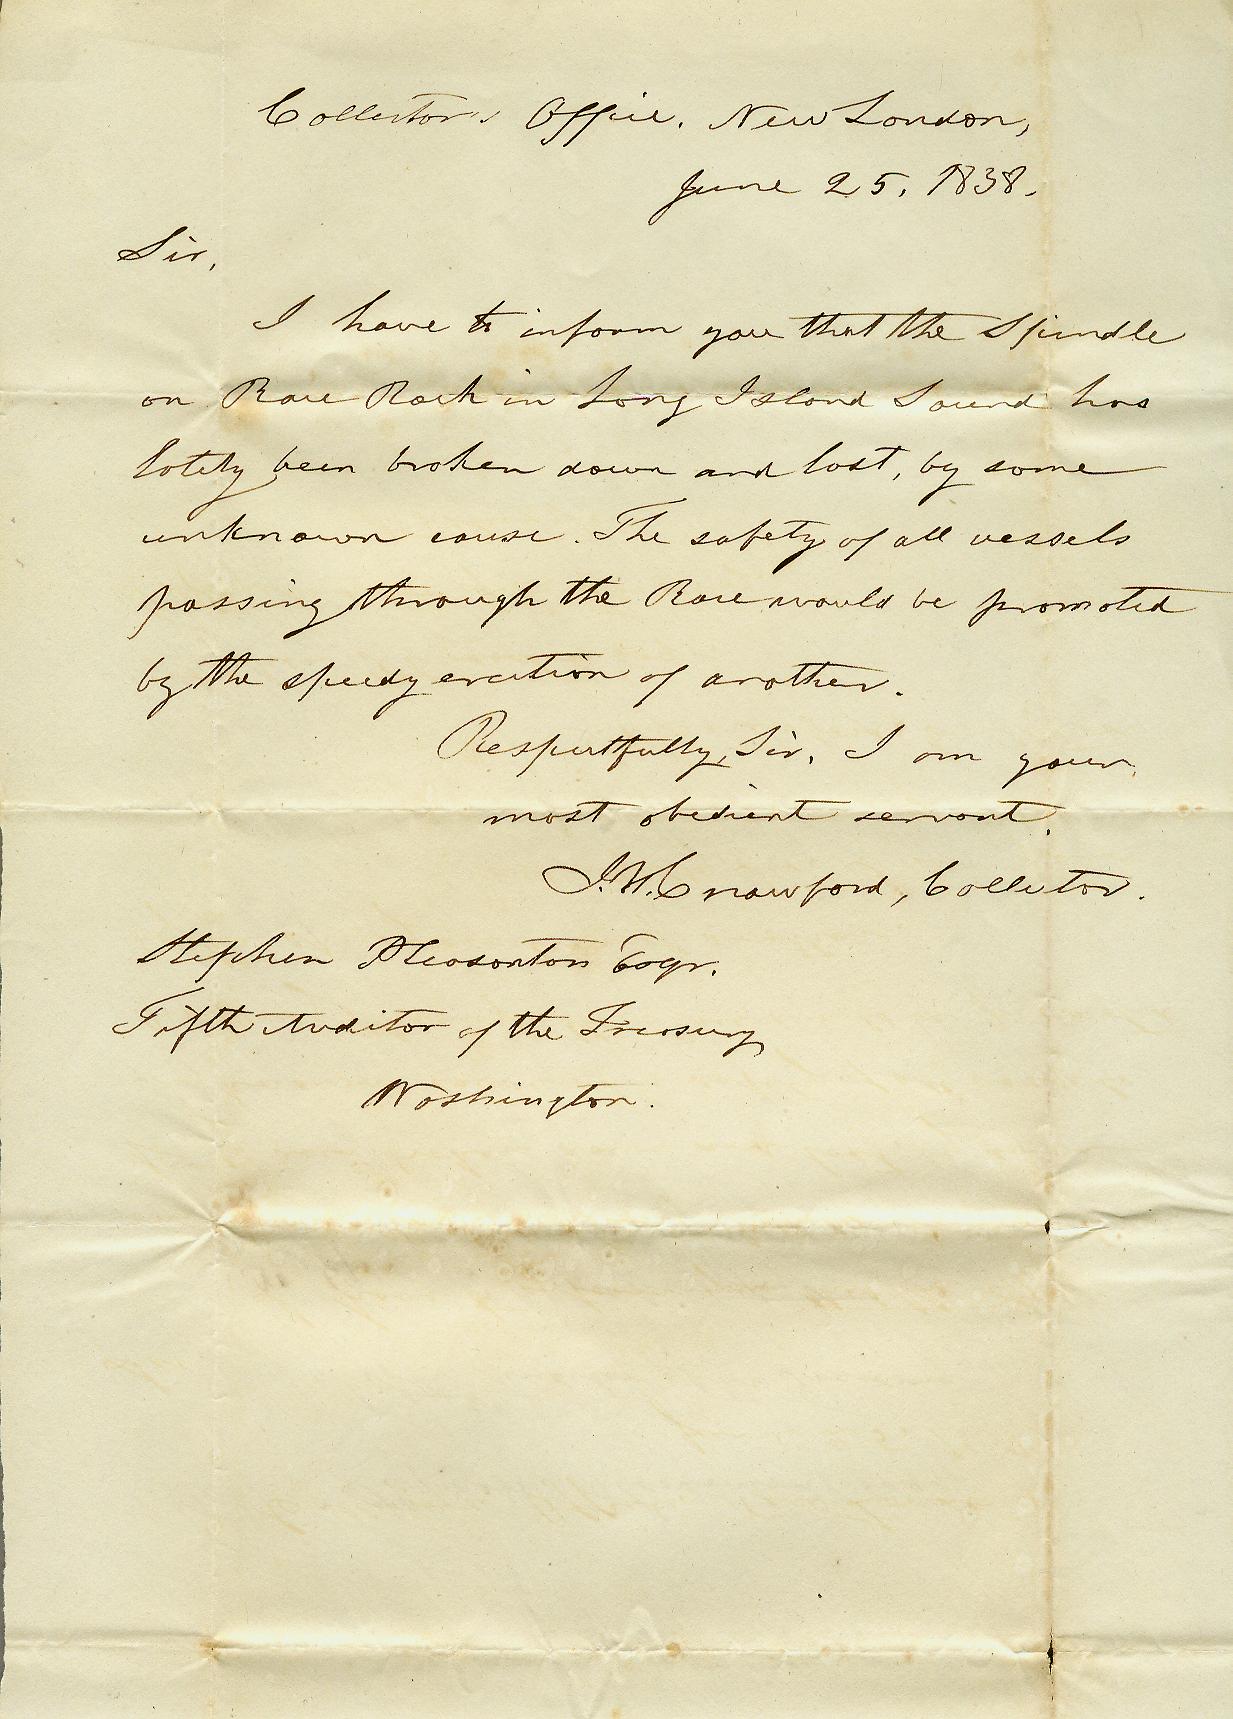 Collector's Office. New London,
June 25. 1838.
Sir,
I have to inform you that the Spindle
on Race Rock in Long Island Sound has
lately been broken down and lost, by some
unknown cause. The safety of all vessels
passing through the Race would be promoted
by the speedy erection of another.
Respectfully, Sir, I am your
most obedient servant.
J. W. Crawford, Collector.
Stephen Pleasonton Esqr.
Fifth Auditor of the Treasury
Washington.